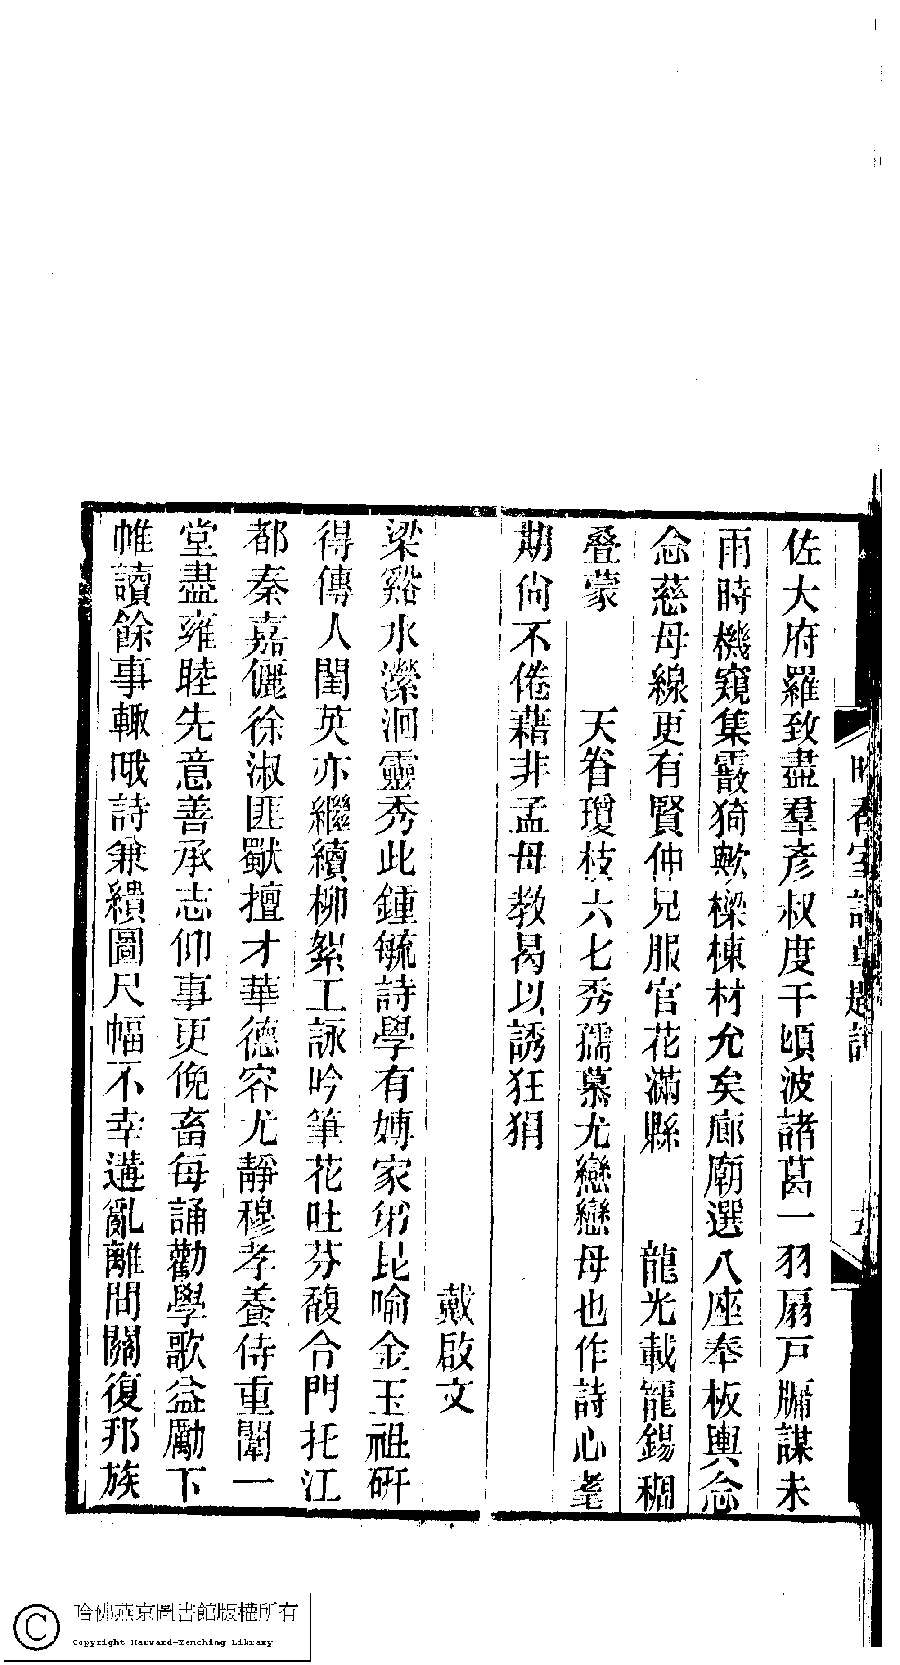 佐大府羅致盡羣彥叔度千頃波諸葛一羽扇戸牖謀未
雨時機窺集霰猗歟樑棟材允矣廊廟選八座奉板輿念
念慈母線更有賢仲兄服官花滿縣 龍光載寵錫稠
叠蒙 天眷瓊枝六七秀孺慕尤戀戀母也作詩心耄
期尙不倦藉非孟母教曷以誘狂狷
戴啟文
梁谿水瀠洄靈秀此鍾毓詩學有嫥家弟昆喻金玉祖硏
得傳人閨英亦繼續柳絮工詠吟筆花吐芬馥合門托江
都秦嘉儷徐淑匪獸擅才華德容尤靜穆孝養侍重闈一
堂盡雍睦先意善承志仰事更俛畜每誦勸學歌益勵下
帷讀餘事輙哦詩兼繢圖尺幅不幸遘亂離間關復邦族
香室詩
五
哈佛燕京圖書館版權所有
Copyright Harvard-Yenching Library